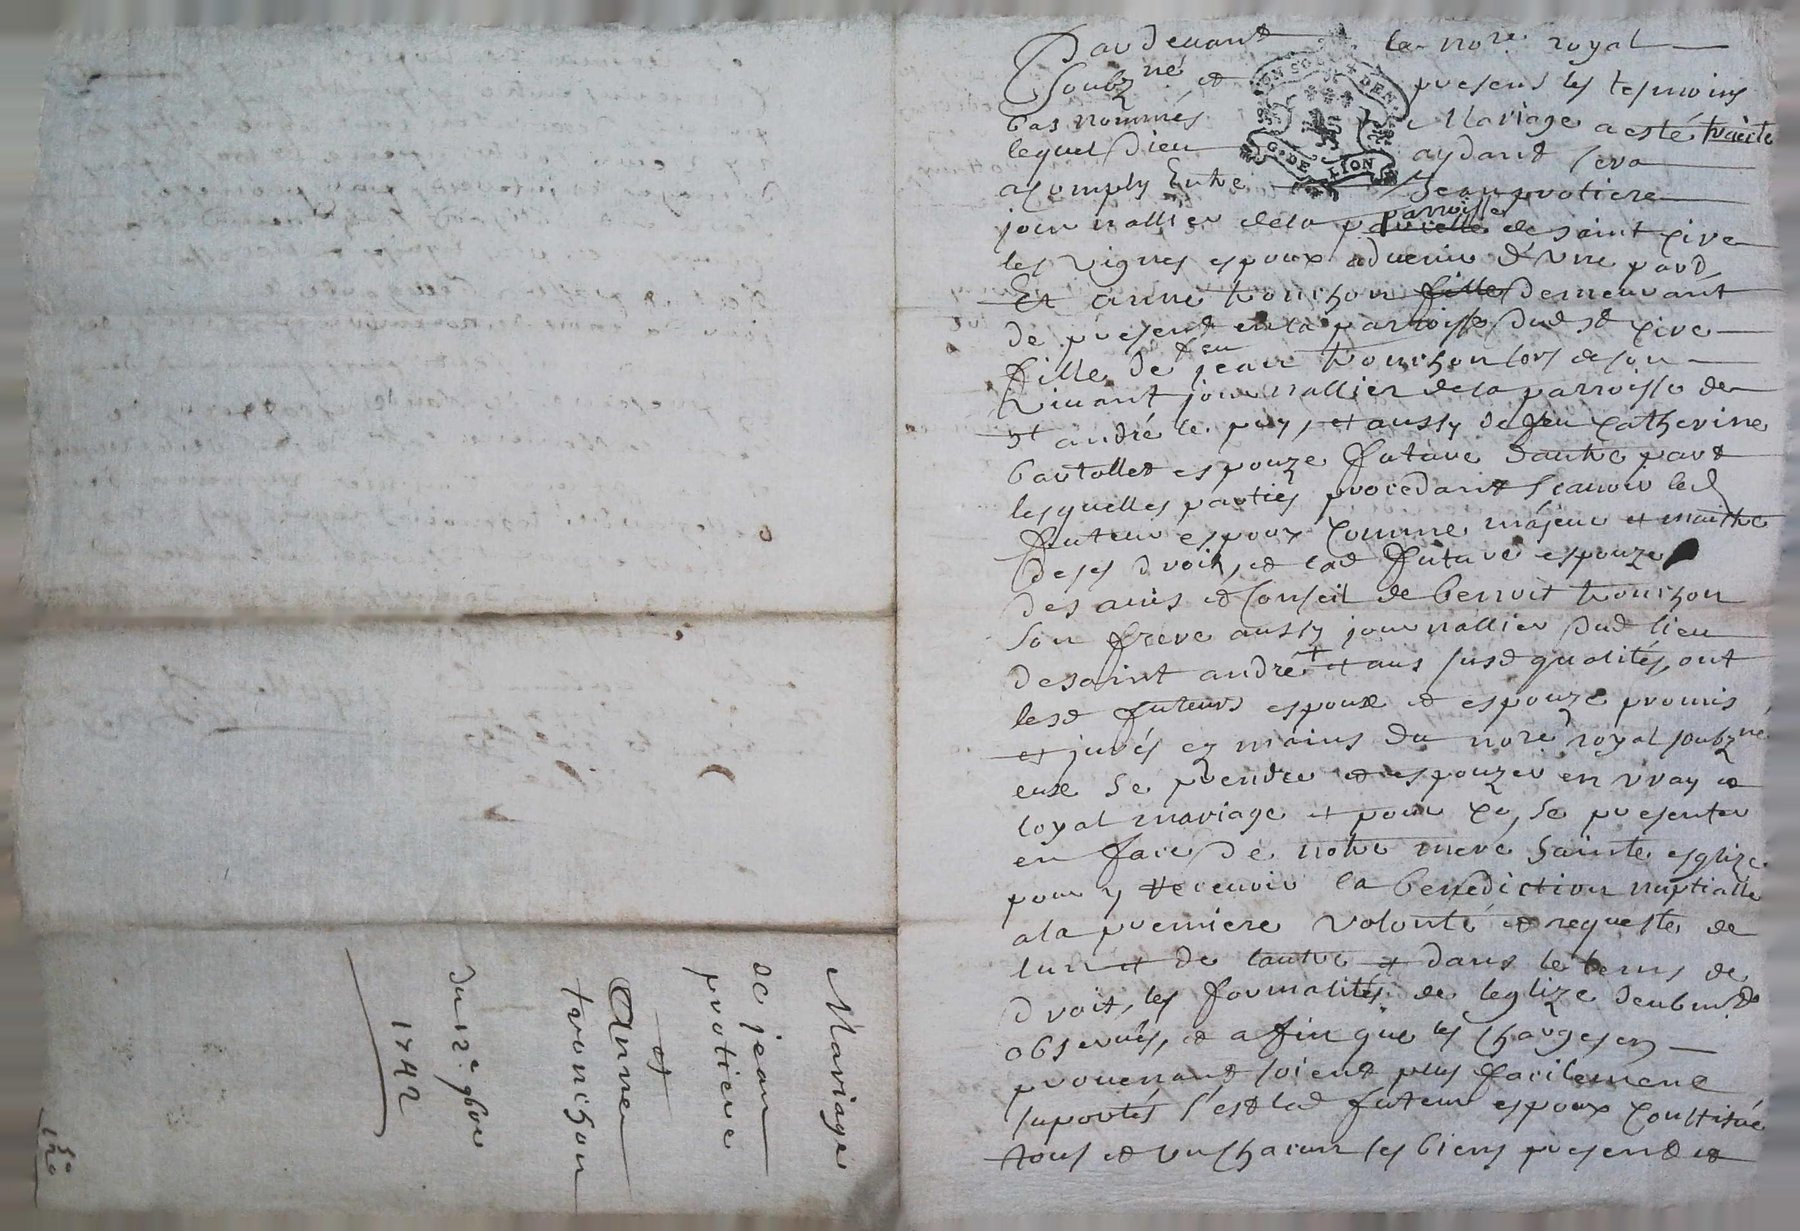 Pardevant le no.re royal
soubz.né et presens les tesmoins
bas nommés Mariage a esté traicte
lequel Dieu aydant sera
acomply Entre Jean protiere
journallier de la parroisse de saint Cire
les vignes espoux advenir d'une part
Et anne tronchon fille demeurant
de present en la parroisse dud st Cire
fille de feu jean tronchon lors de son
vivant journallier de la parroisse de
st andré le puy, et aussy de feu Catherine
bartollet espouze future d'autre part
lesquelles parties procedant scavoir led
futeur espoux Comme majeur et maitre
de ses droits, et lad future espouze
des avis et Conseil de benoit tronchon
son frere aussy journallier dud lieu
de saint andré + et aus susd qualités, ont
lesd futeurs espoux et espouze promis
et jurés ez mains du no.re royal soubz.né
eux se prendre et espouzer en vray et
loyal mariage et pour Ce, se presenter
en face de notre mere sainte esglize
pour y recevoir la benediction nuptialle
a la premiere volonté et requeste de
lun et de lautre et dans le tems de
droit, les formalités de leglize deubm.t
observés, et afin que les Charges en
provenant soient plus facilement
suportés s'est led futeur espoux Constitué
tous et un chacun ses biens present et
Mariage
de jean
protiere
et
Anne
tronchon
Du 12.e 9bre
1742